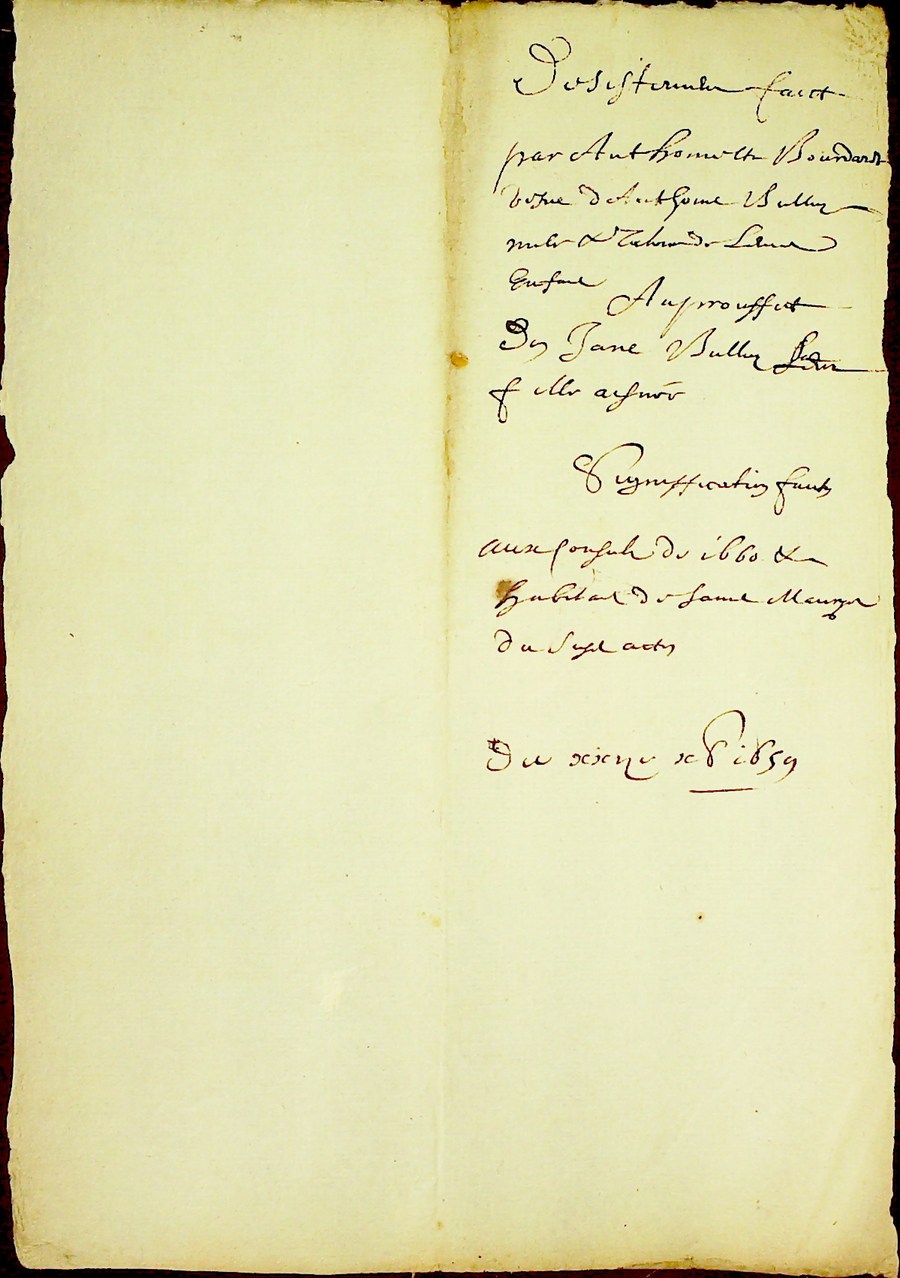 Desistement faict
par Anthoinette Bourdard
vefve d'Anthoine Bulluy
mere & de Leurs
Enfans Auprouffict
De Jane Bulluy Leur
fille aisnée
Signiffication faicte
aux Consulz de 1660 &
habitans de Sainct
du Susd acte
Du 1659